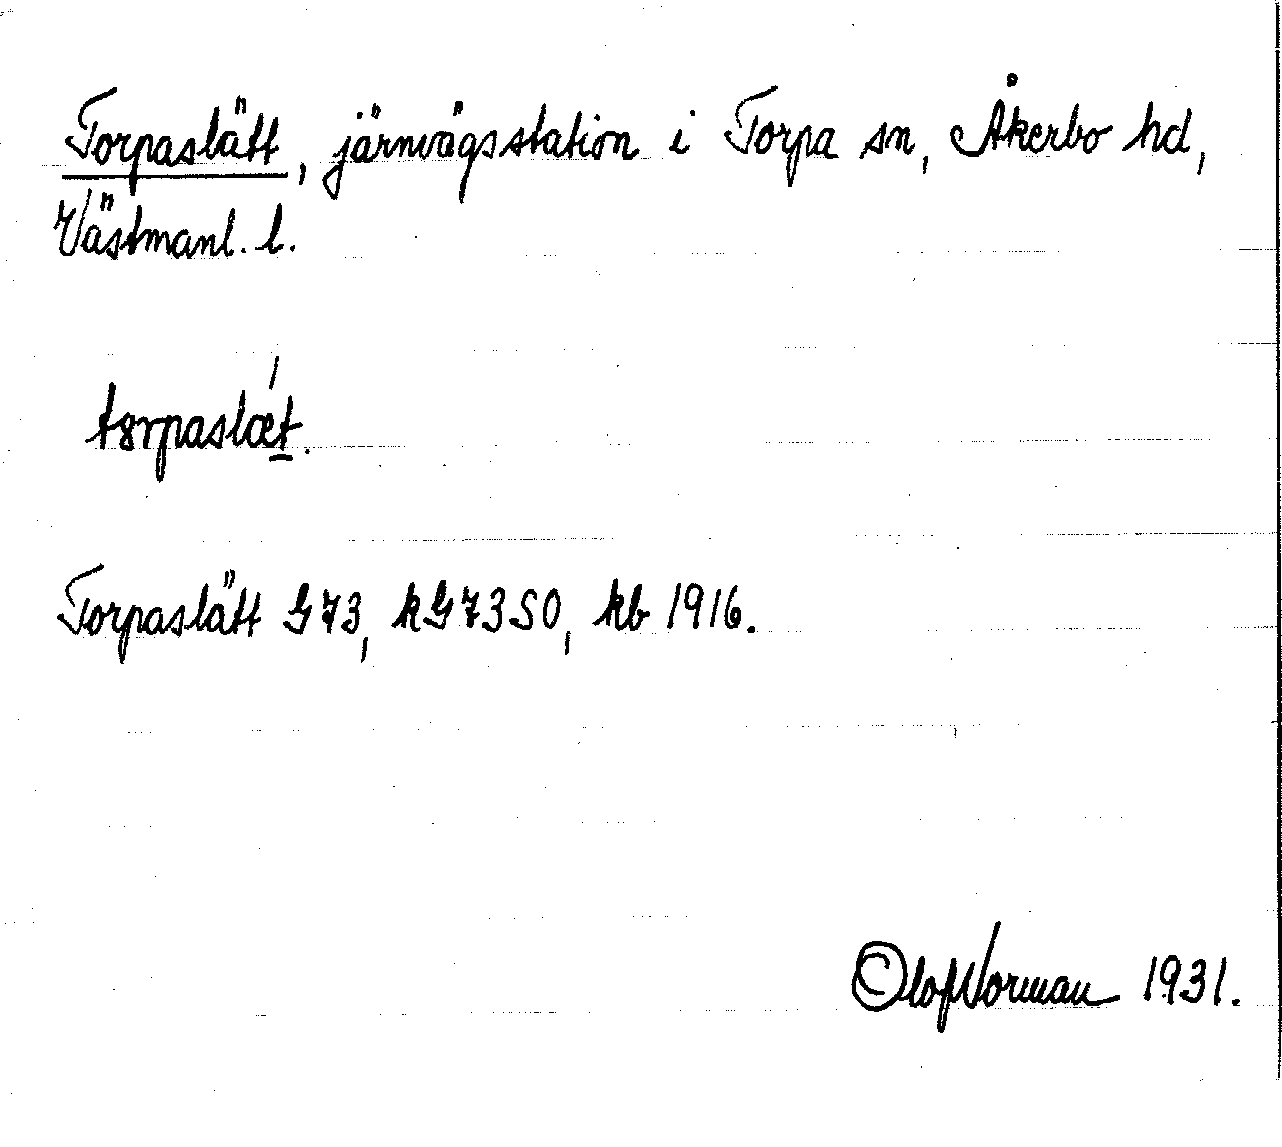 Torpaslätt, järnvägsstation i Torpa sn, Åkerbo hd,
Västmanl. l.
tɞrpaslǽt.
Torpaslätt G73, kG73SO, kb 1916.
Olof Norman 1931.